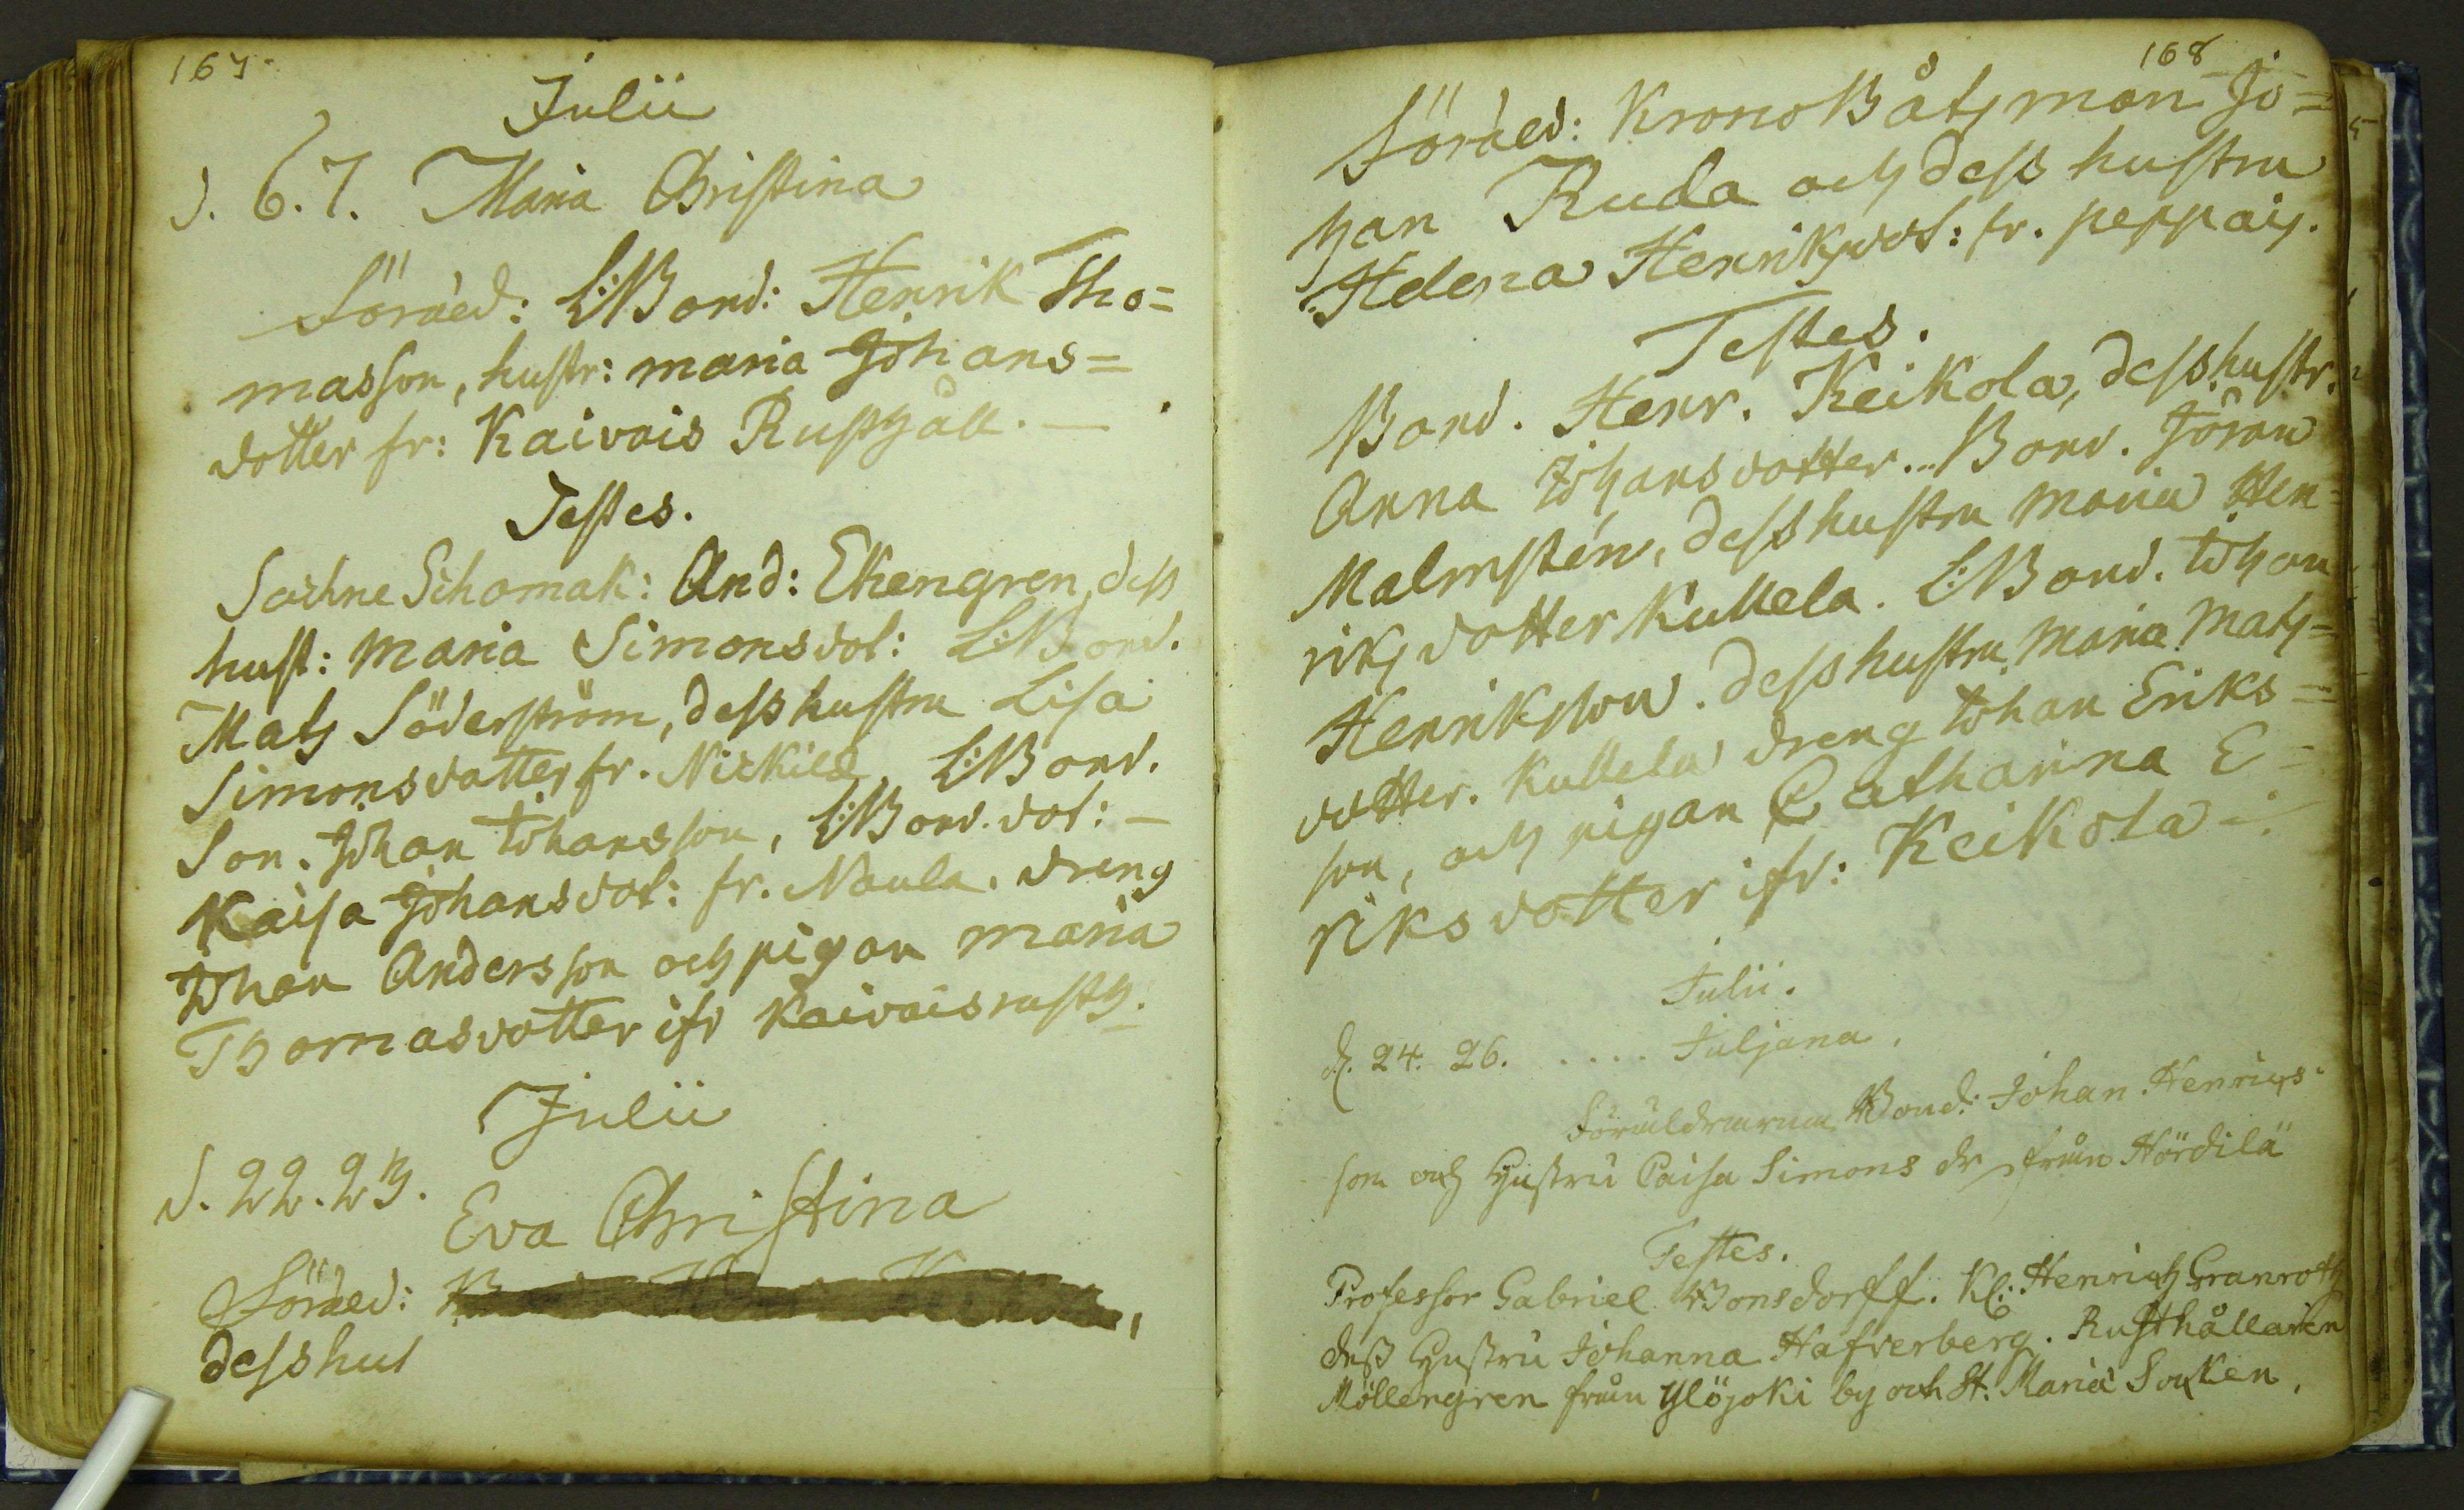 167.
Julii
d. 6. 7. Maria Christina
Föräld: L: Bond: Henrik Tho=
masson, hustr: maria Johans=
dotter fr: Kaivois Rusthåll. —
Testes.
Sochne Schomak: And: Ekengren, dess
hust: Maria Simonsdot: L: Bond.
Mats Söderström, dess hustru Lisa
Simonsdotter fr. Nickilä, L: Bond.
Son. Johan Johansson, L: Bond. dot: —
Kaisa Johansdot: fr. Naula. dreng
Johan Andersson och pigan maria
Thomasdotter ifr Kaivois rusth.
Julii
d. 22. 23.
Eva Christina
Föräld:
dess hus
168
Föräld: Krono Båtsman Jo=
han Ruda och dess hustru
Helena Henriksdot: fr. peppais.
Testes.
Bond. Henr. Keikola, dess hustr.
Anna Johansdotter... Bond. Jöran
Malmstén, dess hustru Maria Hen=
riks dotter Kullela. L: Bond. Johan
Henriksson. dess hustru Maria Mats=
dotter. Kullela dreng Johan Eriks=
son, och pigan Catharina E=
riksdotter ifr: Keikola
Julii.
d. 24. 26. .... Juljana.
Föräldrarna Bond: Johan Henrics
son och Hustru Caisa Simons dr från Hördilä
Testes.
Professor Gabriel Bonsdorff. Kl: Henrich Granroth
dess Hustru Johanna Hafverberg. Rusthållaren
Möllengren från Ylöjoki by och St. Mariæ Socken.